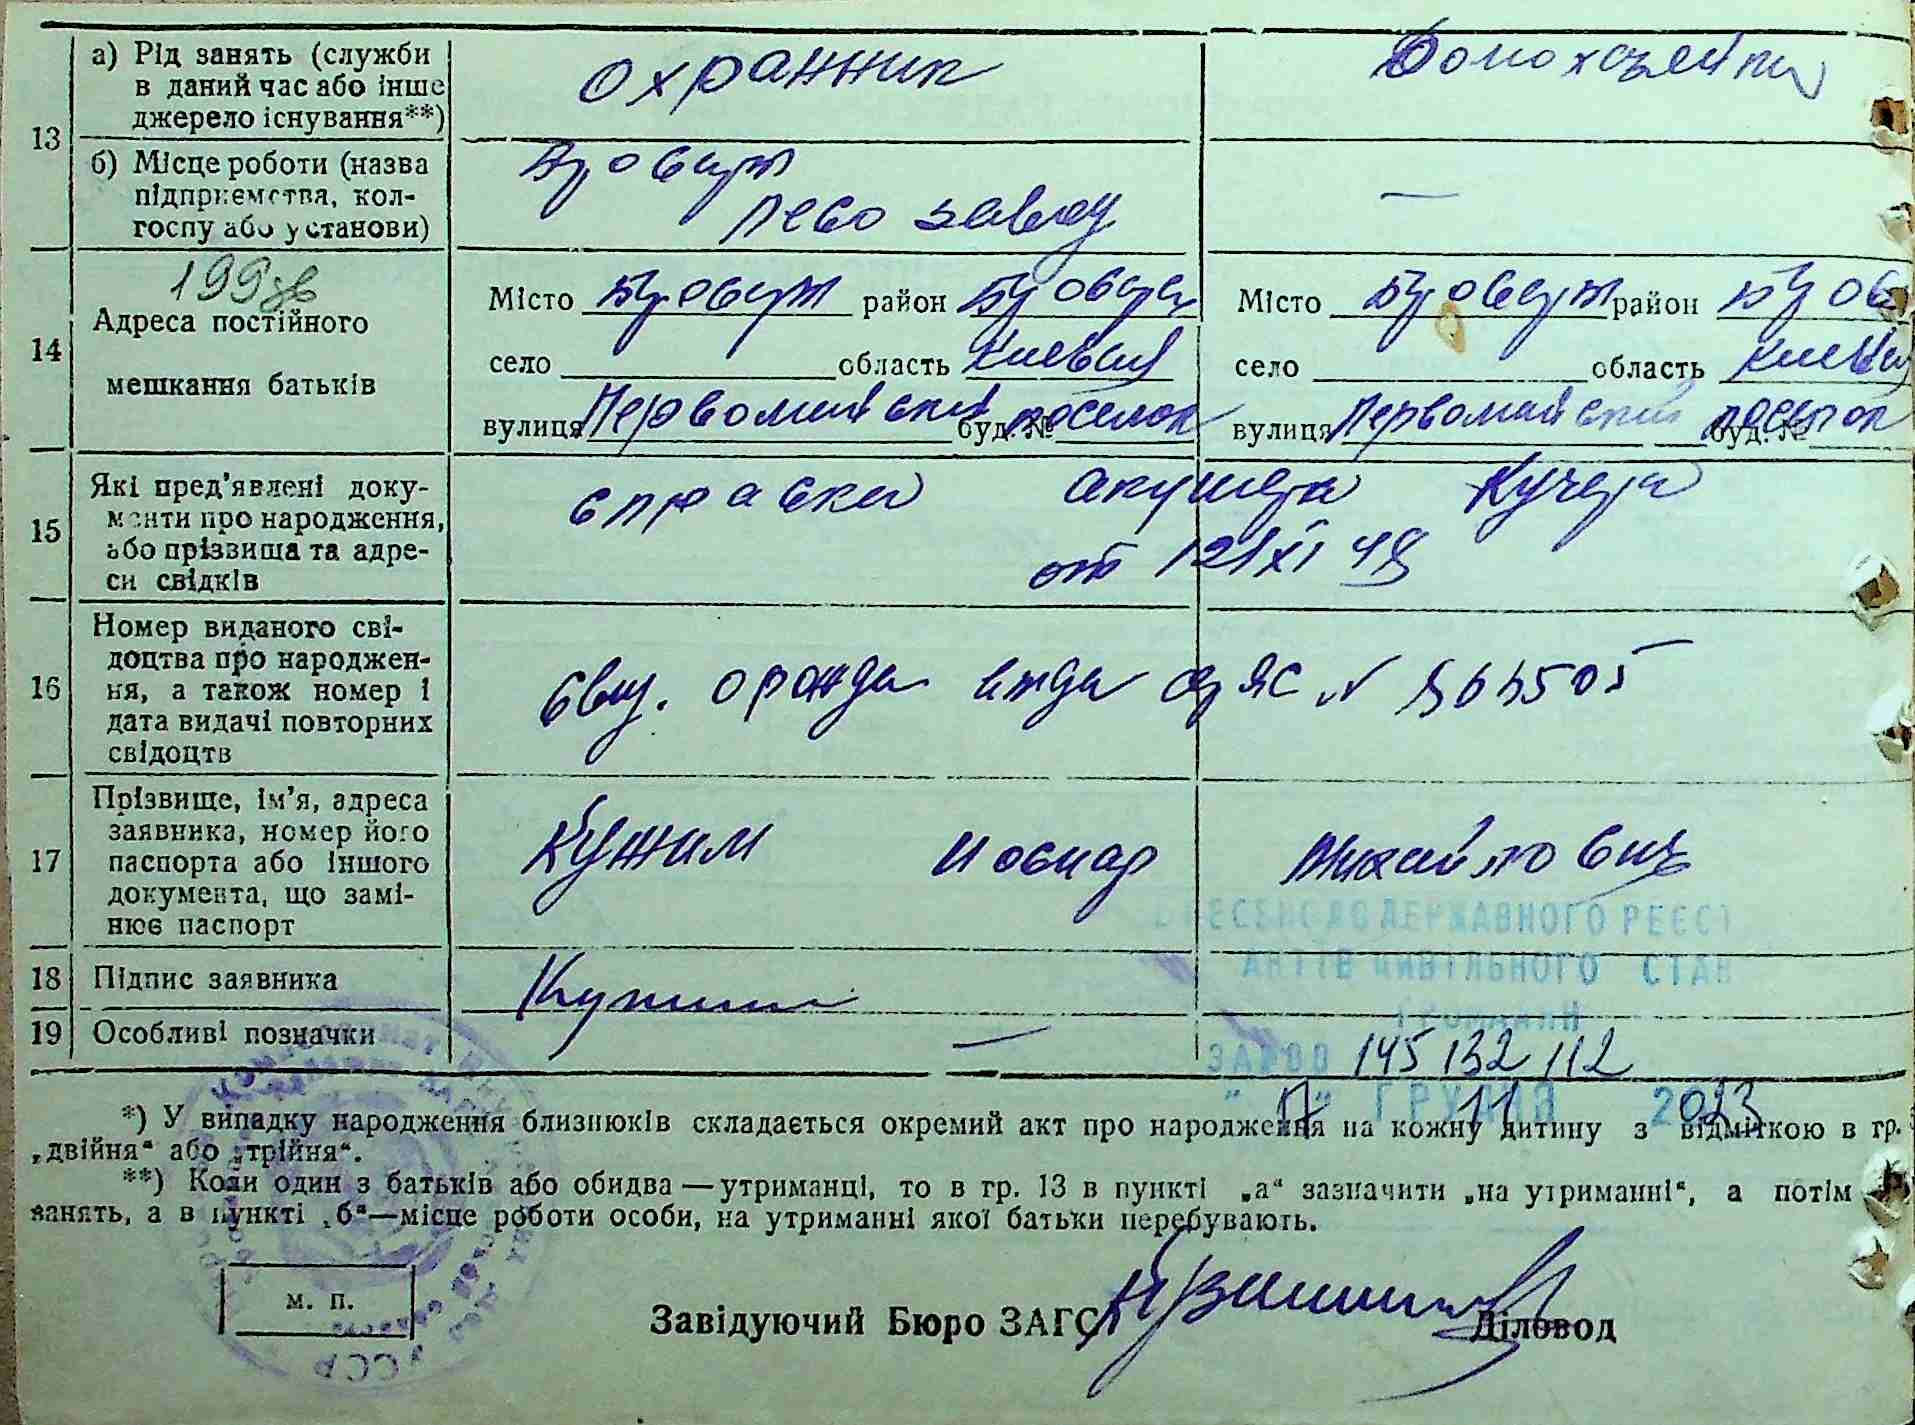 13
а) Рід занять (служби
в даний час або інше
джерело існування**)
охранник
Домохозяйка
б) Місце роботи (назва
підприємства, кол-
госпу або установи)
Бровары
Лесо завод
—
199 зв
14
Адреса постійного
мешкання батьків
Місто Бровары район Бровар
село область Киевская
вулиця Первомайский буд. № поселок
Місто Бровары район Бров
село область Киевск
вулиця Первомайский буд. № поселок
15
Які пред’явлені доку-
менти про народження,
або прізвища та адре-
си свідків
справка акушера Кучера
от 12/XI 48
16
Номер виданого сві-
доцтва про народжен-
ня, а також номер і
дата видачі повторних
свідоцтв
ЯС №
17
Прізвище, ім’я, адреса
заявника, номер його
паспорта або іншого
документа, що замі-
нює паспорт
Кужим Иосиф Михайлович
ВНЕСЕНО ДО ДЕРЖАВНОГО РЕЄСТ
АКТІВ ЦИВІЛЬНОГО СТАН
ГРОМАДЯН
18
Підпис заявника
19
Особливі позначки
—
ЗА № 00 145 132 112
" 11 " ГРУДНЯ 2023
*) У випадку народження близнюків складається окремий акт про народження на кожну дитину з відміткою в гр.
„двійня“ або „трійня“.
**) Коли один з батьків або обидва — утриманці, то в гр. 13 в пункті „а“ зазначити „на утриманні“, а потім
занять, а в пункті „б“—місце роботи особи, на утриманні якої батьки перебувають.
м. п.
Завідуючий Бюро ЗАГС
Діловод
УССР